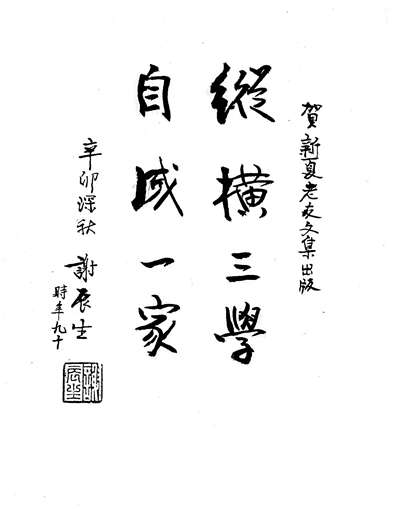 賀新夏老友文集出版
縱橫三學
自成一家
辛卯深秋
謝辰生
時年九十
謝辰生